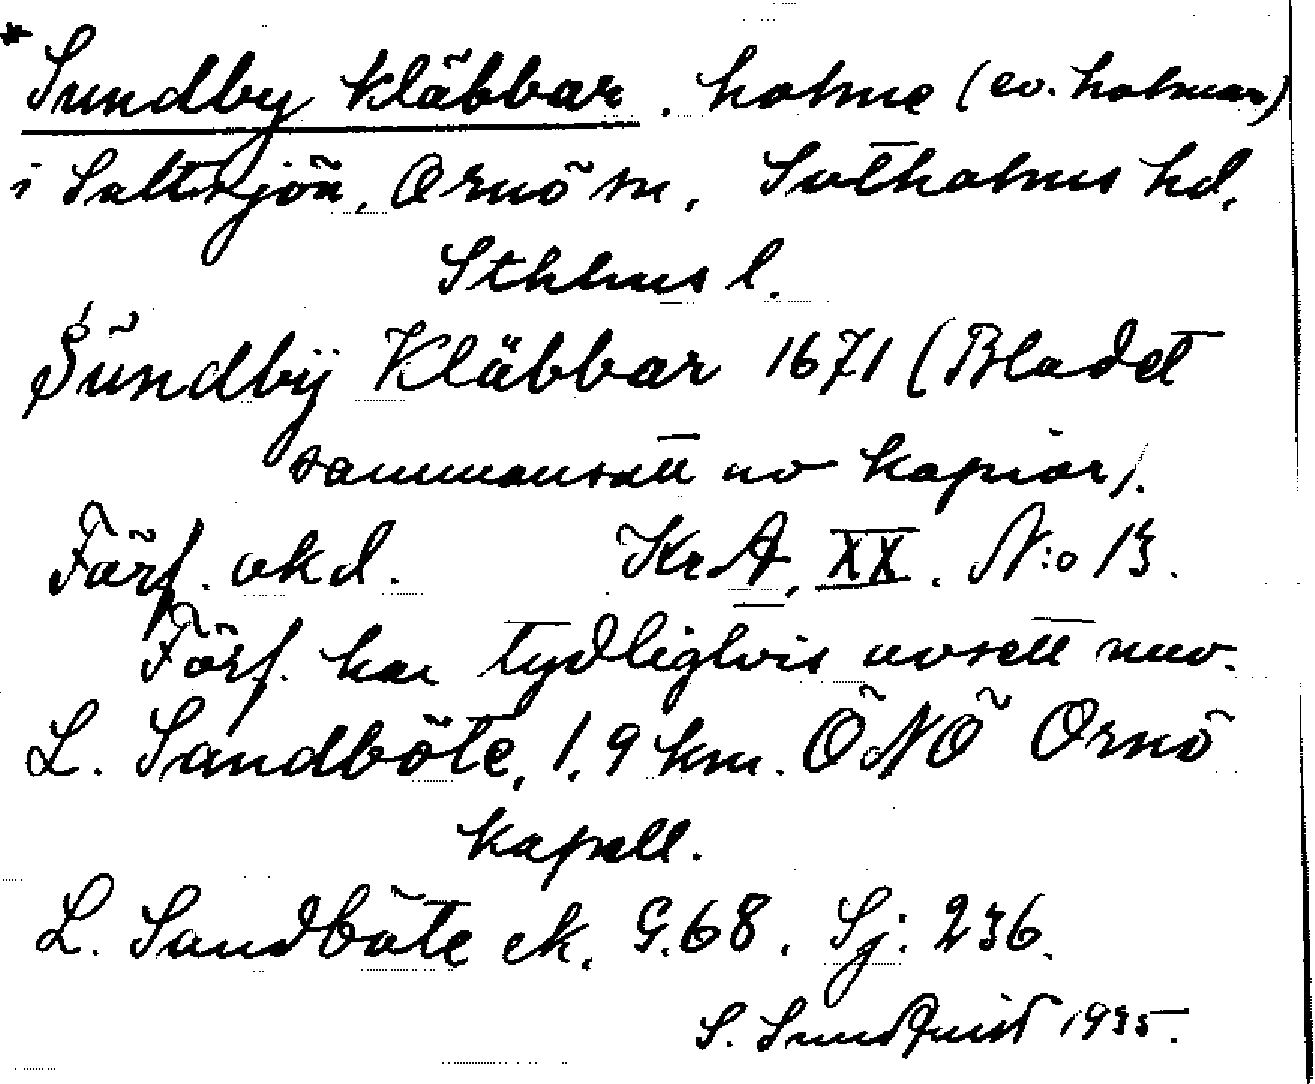 * Sundby Kläbbar. holme (ev. holmar)
i Saltsjön, Ornö sn, Sotholms hd,
Sthlms l.
Sundbÿ Kläbbar 1671 (Bladet
sammansatt av kopior).
Förf. okd. KrA, XX. N:o 13.
Förf. har tydligtvis avsett nuv.
L. Sandböte, 1,9 km. ÖNÖ Ornö
kapell.
L. Sandböte ek. G.68. Sj: 236.
S. Sundquist 1935.